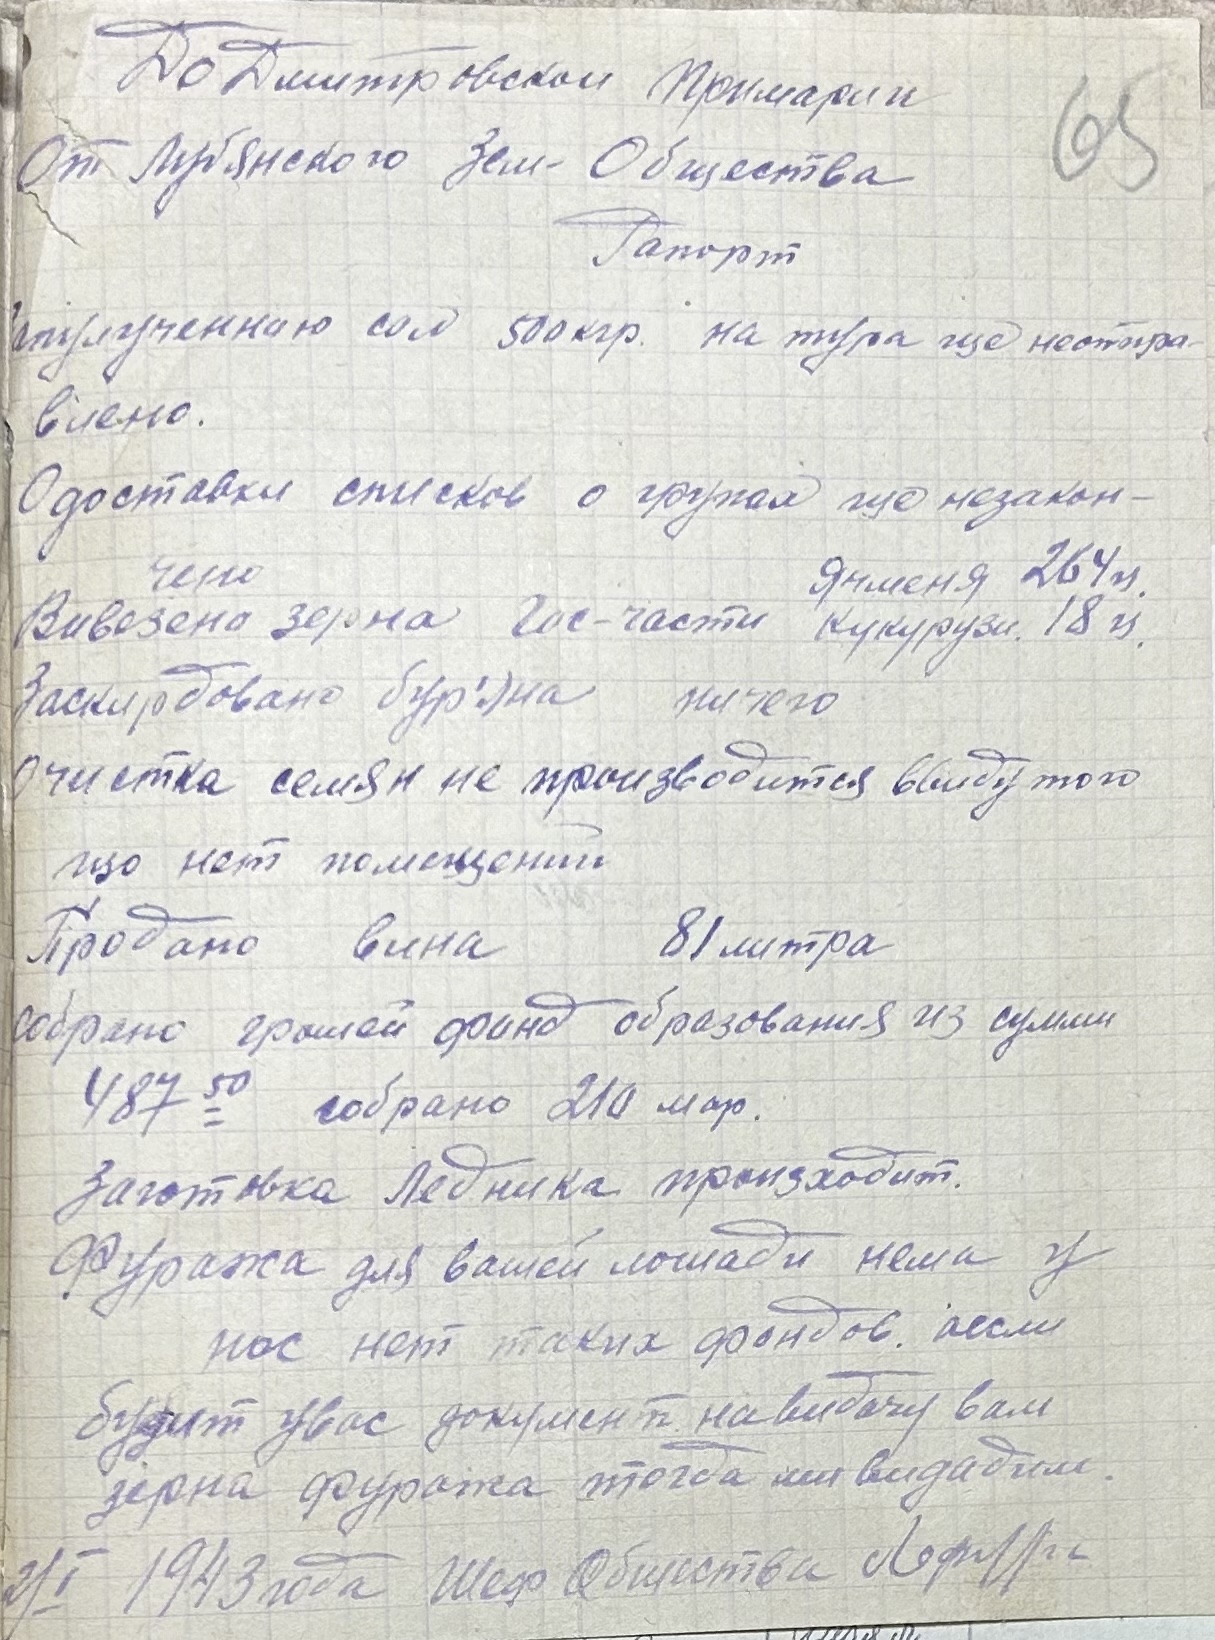 До Дмитровской Примарии
65
От Лубянского Зем- Общества
Рапорт
сол 500 кгр. на тура ще неотпра-
влено.
О доставки списков о групах ще незакон-
чено Ячменя 264 ц.
Вивезено зерна Гос-части Кукурузи. 18 ц.
Заскирдовано бур'яна ничего
Очистка семян не производится ввиду того
що нет помещений
Продано вина 81 литра
собрано грошей фонд образования из сумми
487 50 собрано 210 мар.
Заготовка Ледника произходит.
Фуража для вашей лошади нема у
нас нет таких фондов. аесли
будит увас документ на видачу вам
зерна фуража тогда ми видадим.
1943 года Шеф Общества